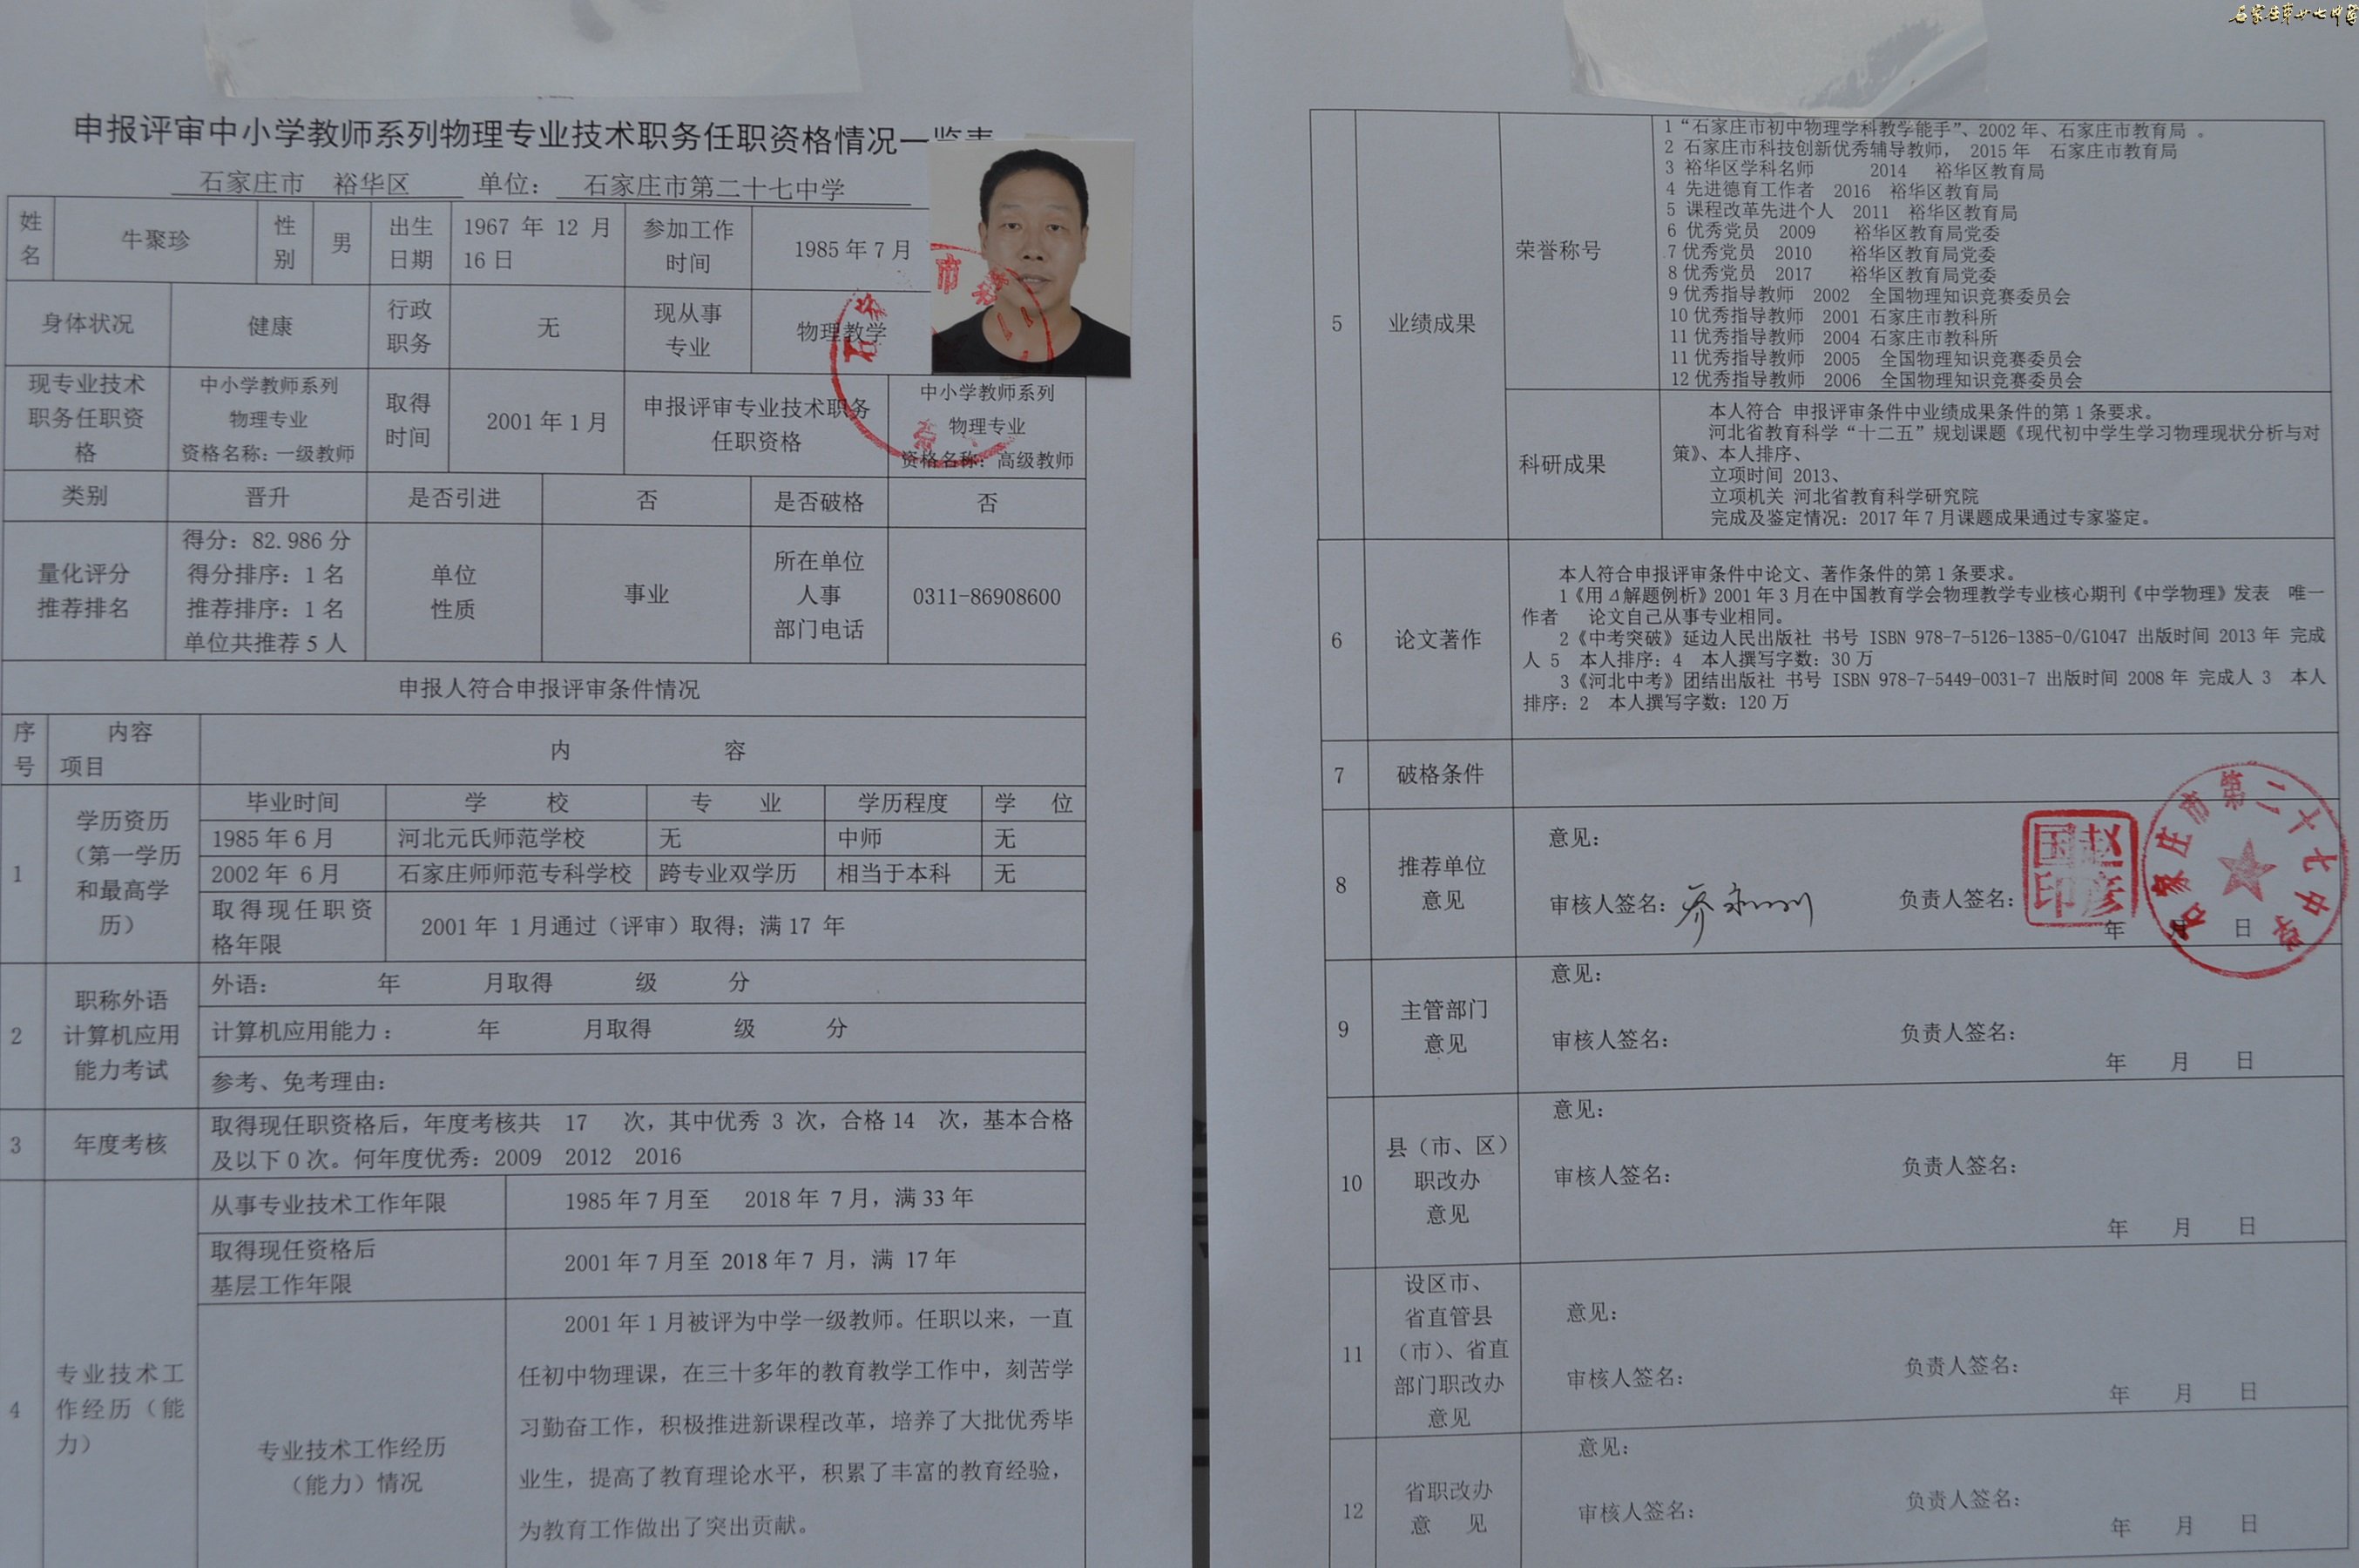 石家庄第廿七中学
申报评审中小学教师系列物理专业技术职务任职资格情况一览表
石家庄市 裕华区 单位： 石家庄市第二十七中学
姓名 牛聚珍 性别 男 出生日期 1967 年 12 月 16 日 参加工作时间 1985 年 7 月
身体状况 健康 行政职务 无 现从事专业 物理教学
现专业技术职务任职资格 中小学教师系列 物理专业 资格名称：一级教师 取得时间 2001 年 1 月 申报评审专业技术职务任职资格 中小学教师系列 物理专业 资格名称：高级教师
类别 晋升 是否引进 否 是否破格 否
量化评分推荐排名 得分：82.986 分 得分排序：1 名 推荐排序：1 名 单位共推荐 5 人 单位性质 事业 所在单位人事部门电话 0311-86908600
申报人符合申报评审条件情况
序号 内容 项目 内 容
1 学历资历（第一学历和最高学历） 毕业时间 学 校 专 业 学历程度 学 位
1985 年 6 月 河北元氏师范学校 无 中师 无
2002 年 6 月 石家庄师师范专科学校 跨专业双学历 相当于本科 无
取得现任职资格年限 2001 年 1 月通过（评审）取得；满 17 年
2 职称外语计算机应用能力考试 外语： 年 月取得 级 分
计算机应用能力： 年 月取得 级 分
参考、免考理由：
3 年度考核 取得现任职资格后，年度考核共 17 次，其中优秀 3 次，合格 14 次，基本合格
及以下 0 次。何年度优秀：2009 2012 2016
4 专业技术工作经历（能力） 从事专业技术工作年限 1985 年 7 月至 2018 年 7 月，满 33 年
取得现任资格后基层工作年限 2001 年 7 月至 2018 年 7 月，满 17 年
专业技术工作经历（能力）情况
2001 年 1 月被评为中学一级教师。任职以来，一直
任初中物理课，在三十多年的教育教学工作中，刻苦学
习勤奋工作，积极推进新课程改革，培养了大批优秀毕
业生，提高了教育理论水平，积累了丰富的教育经验，
为教育工作做出了突出贡献。
5 业绩成果 荣誉称号
1 “石家庄市初中物理学科教学能手”、2002 年、石家庄市教育局 。
2 石家庄市科技创新优秀辅导教师， 2015 年 石家庄市教育局
3 裕华区学科名师 2014 裕华区教育局
4 先进德育工作者 2016 裕华区教育局
5 课程改革先进个人 2011 裕华区教育局
6 优秀党员 2009 裕华区教育局党委
7 优秀党员 2010 裕华区教育局党委
8 优秀党员 2017 裕华区教育局党委
9 优秀指导教师 2002 全国物理知识竞赛委员会
10 优秀指导教师 2001 石家庄市教科所
11 优秀指导教师 2004 石家庄市教科所
11 优秀指导教师 2005 全国物理知识竞赛委员会
12 优秀指导教师 2006 全国物理知识竞赛委员会
科研成果
本人符合 申报评审条件中业绩成果条件的第 1 条要求。
河北省教育科学“十二五”规划课题《现代初中学生学习物理现状分析与对
策》、本人排序、
立项时间 2013、
立项机关 河北省教育科学研究院
完成及鉴定情况：2017 年 7 月课题成果通过专家鉴定。
6 论文著作
本人符合申报评审条件中论文、著作条件的第 1 条要求。
1《用⊿解题例析》2001 年 3 月在中国教育学会物理教学专业核心期刊《中学物理》发表 唯一
作者 论文自己从事专业相同。
2《中考突破》延边人民出版社 书号 ISBN 978-7-5126-1385-0/G1047 出版时间 2013 年 完成
人 5 本人排序：4 本人撰写字数：30 万
3《河北中考》团结出版社 书号 ISBN 978-7-5449-0031-7 出版时间 2008 年 完成人 3 本人
排序：2 本人撰写字数：120 万
7 破格条件
8 推荐单位意见 意见：
审核人签名： 负责人签名：
赵彦国印
年 月 日
石家庄市第二十七中学
9 主管部门意见 意见：
审核人签名： 负责人签名：
年 月 日
10 县（市、区）职改办意见 意见：
审核人签名： 负责人签名：
年 月 日
11 设区市、省直管县（市）、省直部门职改办意见 意见：
审核人签名： 负责人签名：
年 月 日
12 省职改办意 见 意见：
审核人签名： 负责人签名：
年 月 日